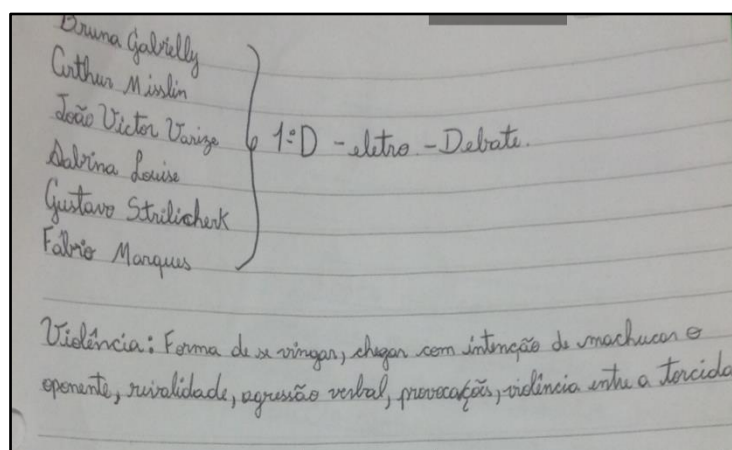 Bruna Gabrielly
Arthur Misslin
João Victor Varize
Sabrina Louise
Gustavo Strilicherk
Fábio Marques
1ºD - eletro - Debate.
Violência: Forma de se vingar, chegar com intenção de machucar o
oponente, rivalidade, agressão verbal, provocações, violência entre a torcida